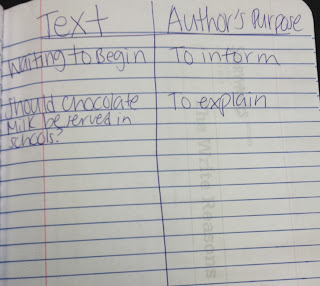 Text Author's Purpose
Waiting to Begin To inform
Should chocolate To explain
Milk be served in
schools?